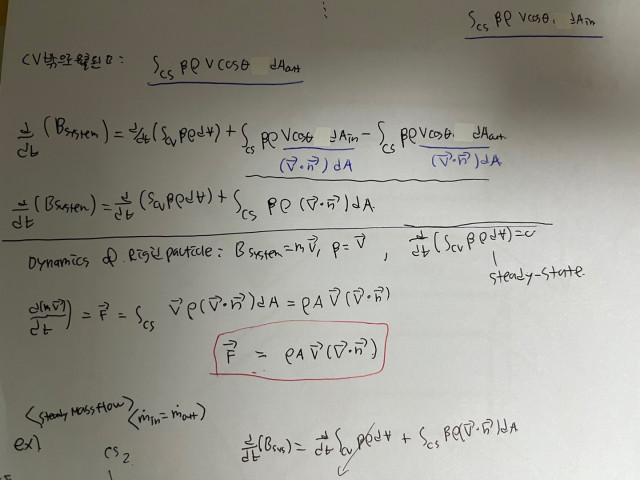 ∫cs βρ Vcosθ dAin
∫cs βρ Vcosθ dAout
d/dt (Bsystem) = d/dt (∫cv βρdV) + ∫cs βρ Vcosθ dAin − ∫cs βρ Vcosθ dAout
(V⃗·n⃗) dA (V⃗·n⃗) dA
d/dt (Bsystem) = d/dt (∫cv βρdV) + ∫cs βρ (V⃗·n⃗) dA
Dynamics of Rigid particle : Bsystem = mV⃗, β = V⃗ , d/dt (∫cv βρdV) = 0
steady-state.
d(mV⃗)/dt) = F⃗ = ∫cs V⃗ρ(V⃗·n⃗)dA = ρAV⃗(V⃗·n⃗)
F⃗ = ρAV⃗(V⃗·n⃗)
<steady Mass flow> (ṁin = ṁout)
ex) d/dt (Bsys) = d/dt ∫cv βρdV + ∫cs βρ(V⃗·n⃗)dA
CS2